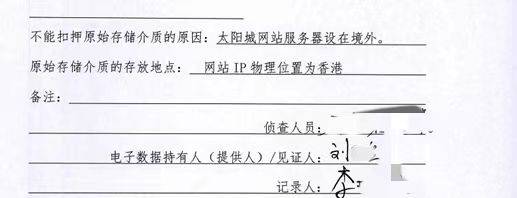 不能扣押原始存储介质的原因：太阳城网站服务器设在境外。
原始存储介质的存放地点：网站 IP 物理位置为香港
备注：
侦查人员：
电子数据持有人（提供人）/见证人：刘
记录人：李